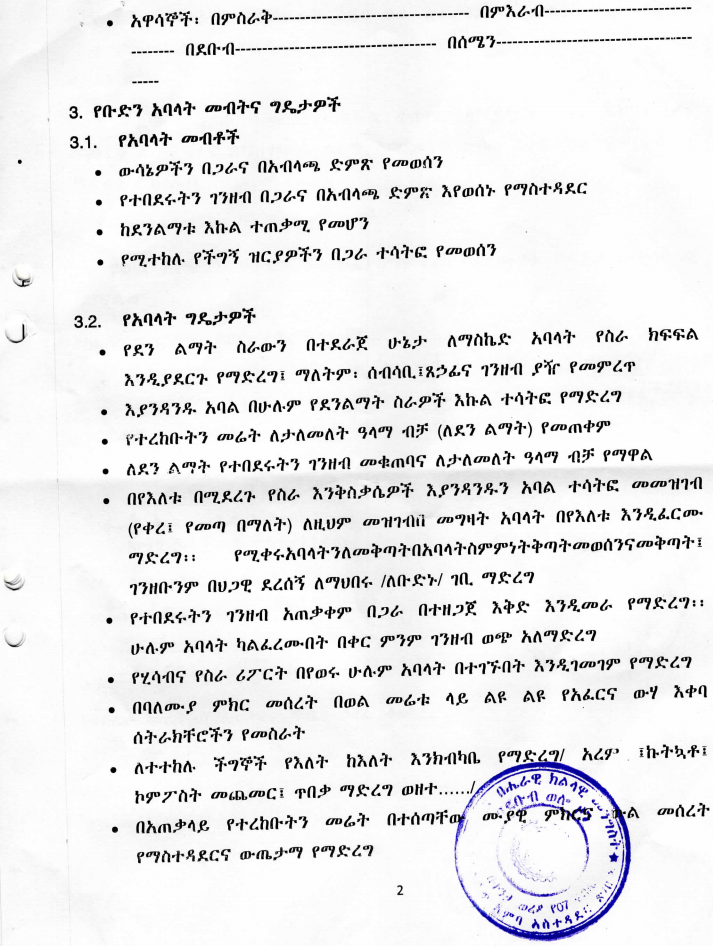 • አዋሳኞች፡ በምስራቅ------------------------------------ በምእራብ---------------------------
-------- በደቡብ------------------------------------- በሰሜን------------------------------------
-----
3. የቡድን አባላት መብትና ግዴታዎች
3.1. የአባላት መብቶች
• ውሳኔዎችን በጋራና በአብላጫ ድምጽ የመወሰን
• የተበደሩትን ገንዘብ በጋራና በአብላጫ ድምጽ እየወሰኑ የማስተዳደር
• ከደንልማቱ እኩል ተጠቃሚ የመሆን
• የሚተከሉ የችግኝ ዝርያዎችን በጋራ ተሳትፎ የመወሰን
3.2. የአባላት ግዴታዎች
• የደን ልማት ስራውን በተደራጀ ሁኔታ ለማስኬድ አባላት የስራ ክፍፍል
እንዲያደርጉ የማድረግ፤ ማለትም፡ ሰብሳቢ፤ጸኃፊና ገንዘብ ያዥ የመምረጥ
• እያንዳንዱ አባል በሁሉም የደንልማት ስራዎች እኩል ተሳትፎ የማድረግ
• የተረከቡትን መሬት ለታለመለት ዓላማ ብቻ (ለደን ልማት) የመጠቀም
• ለደን ልማት የተበደሩትን ገንዘብ መቁጠባና ለታለመለት ዓላማ ብቻ የማዋል
• በየእለቱ በሚደረጉ የስራ እንቅስቃሴዎች እያንዳንዱን አባል ተሳትፎ መመዝገብ
(የቀረ፤ የመጣ በማለት) ለዚህም መዝገብ መግዛት አባላት በየእለቱ እንዲፈርሙ
ማድረግ፡፡ የሚቀሩአባላትንለመቅጣትበአባላትስምምነትቅጣትመወሰንናመቅጣት፤
ገንዘቡንም በህጋዊ ደረሰኝ ለማህበሩ /ለቡድኑ/ ገቢ ማድረግ
• የተበደሩትን ገንዘብ አጠቃቀም በጋራ በተዘጋጀ እቅድ እንዲመራ የማድረግ፡፡
ሁሉም አባላት ካልፈረሙበት በቀር ምንም ገንዘብ ወጭ አለማድረግ
• የሂሳብና የስራ ሪፖርት በየወሩ ሁሉም አባላት በተገኙበት እንዲገመገም የማድረግ
• በባለሙያ ምክር መሰረት በወል መሬቱ ላይ ልዩ ልዩ የአፈርና ውሃ እቀባ
ሰትራክቸሮችን የመስራት
• ለተተከሉ ችግኞች የእለት ከእለት እንክብካቤ የማድረግ/ አረም ፤ኩትኳቶ፤
ኮምፖስት መጨመር፤ ጥበቃ ማድረግ ወዘተ....../
• በአጠቃላይ የተረከቡትን መሬት በተሰጣቸው ሙያዊ ምክርና ውል መሰረት
የማስተዳደርና ውጤታማ የማድረግ
2